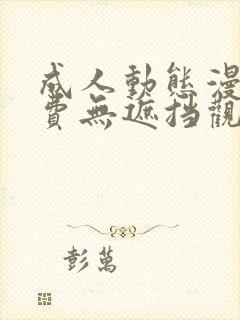 成人動態漫
費無遮挡觀
彭萬